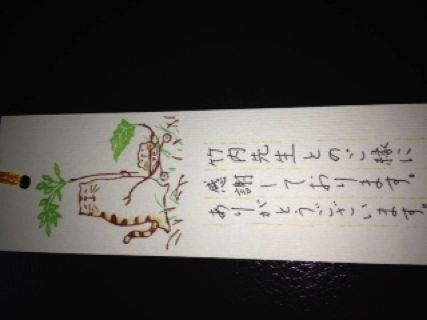 竹内先生とのご縁に
感謝しております。
ありがとうございます。